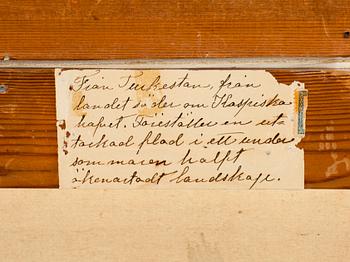 Från Turkestan, från
landet söder om Kaspiska
hafvet. Föreställer en ut-
torkad flod i ett under
sommaren halft
ökenartadt landskap.